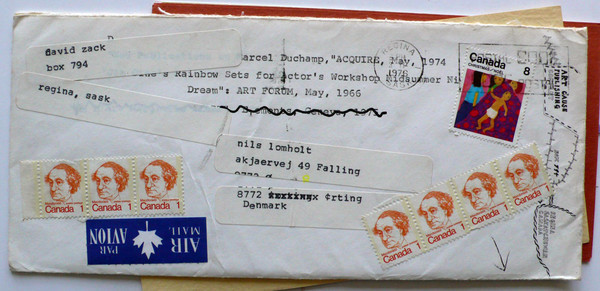 david zack
box 794
regina, sask
Marcel Duchamp,"ACQUIRE, May, 1974
Rainbow Sets for Actor's Workshop Midsummer Ni
Dream": ART FORUM, May, 1966
REGINA
1976
SASK
Canada
CHRISTMAS/NOËL
8
ART CAUSE
PUBLISHING
nils lomholt
akjaervej 49 Falling
8772 ørting
Denmark
Canada 1
Canada 1
Canada 1
AIR
MAIL
PAR
AVION
Canada 1
Canada 1
Canada 1
Canada 1
REGINA
SASKATCHEWAN
CANADA